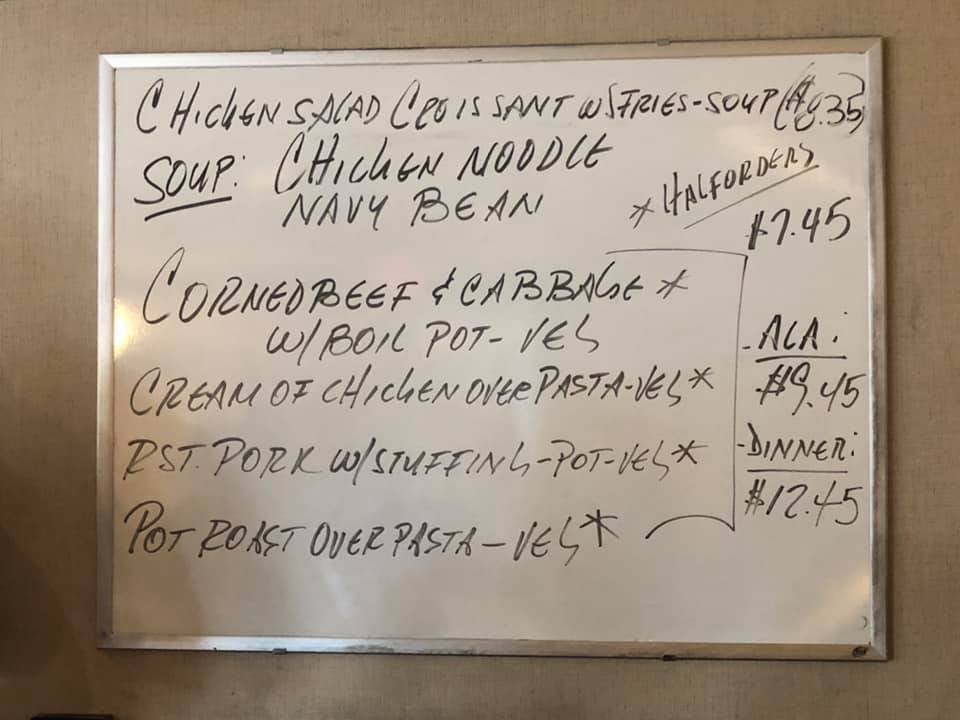 CHICKEN SALAD CROISSANT W/FRIES-SOUP ($8.35)
SOUP: CHICKEN NOODLE
NAVY BEAN
* HALF ORDERS
$7.45
CORNED BEEF & CABBAGE *
W/ BOIL POT- VEG
CREAM OF CHICKEN OVER PASTA-VEG *
RST. PORK W/STUFFING-POT-VEG *
POT ROAST OVER PASTA-VEG *
- ALA:
$9.45
- DINNER:
$12.45